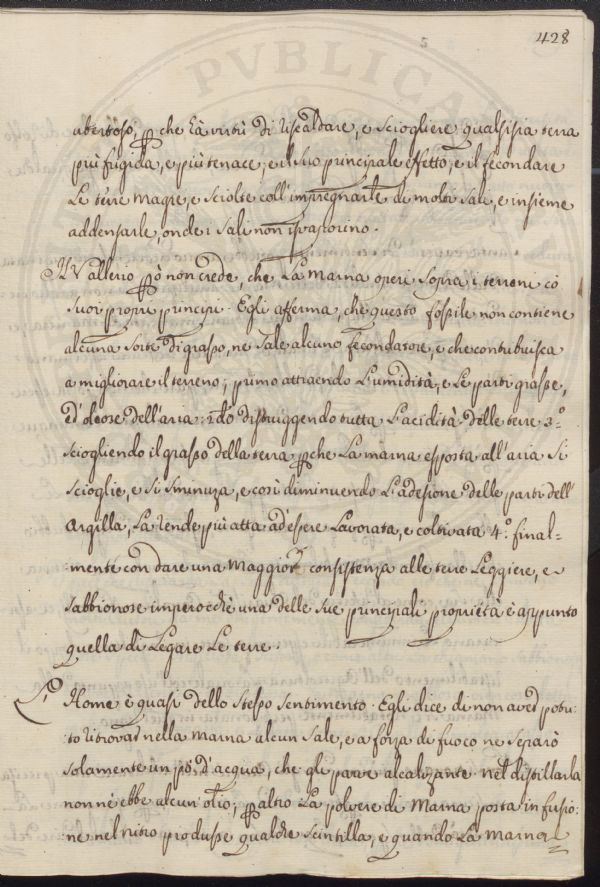 428
PVBLICA
ubertoso, p che hà virtù di riscaldare, e sciogliere qualsisia terra
più frigida, e più tenace, e il suo principale effetto, e il fecondare
Le terre magre, e sciolte coll'impregnarle di molti Sali, e insieme
addensarle, onde i Sali non isvaporino.
Il Vallerio pò non crede, che La marna operi sopra i terreni cò
suoi proprj principj. Egli afferma, che questo fossile non contiene
alcuna sorte di grasso, ne sale alcuno fecondatore, e che contribuisca
a migliorare il terreno; primo attraendo L'umidità, e Le parti grasse,
ed'oleose dell'aria: 2do distruggendo tutta L'acidità delle terre 3.o
sciogliendo il grasso della terra pche La marna esposta all'aria si
scioglie, e si sminuza, e così diminuendo L'adesione delle parti dell'
Argilla, La rende più atta ad'essere Lavorata, e coltivata 4.o final=
=mente con dare una maggior consistenza alle terre Leggiere, e
sabbionose imperocchè una delle sue principali proprietà è appunto
quella di Legare Le terre.
Home è quasi dello stesso sentimento. Egli dice di non aver potu:
:to ritrovar nella marna alcun sale, e a forza di fuoco ne separò
solamente un pò d'acqua, che gli parve alcalizante. nel distillarla
non n'ebbe alcun'olio; paltro La polvere di Marna posta in fusio:
:ne nel nitro produsse qualche scintilla, e quando La marna